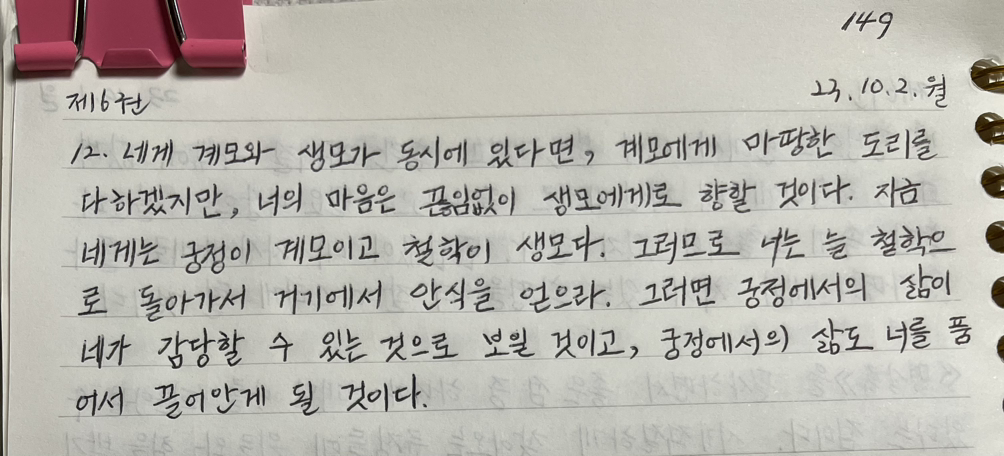 149
제6권
23.10.2.월
12. 네게 계모와 생모가 동시에 있다면, 계모에게 마땅한 도리를
다하겠지만, 너의 마음은 끊임없이 생모에게로 향할 것이다. 지금
네게는 궁정이 계모이고 철학이 생모다. 그러므로 너는 늘 철학으
로 돌아가서 거기에서 안식을 얻으라. 그러면 궁정에서의 삶이
네가 감당할 수 있는 것으로 보일 것이고, 궁정에서의 삶도 너를 품
어서 끌어안게 될 것이다.